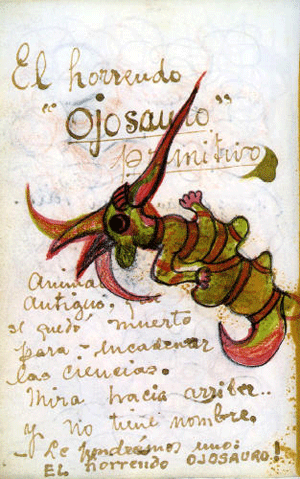 El horrendo
"Ojosauro"
primitivo
Animal
antiguo,
se quedó muerto
para encadenar
las ciencias.
Mira hacia arriba..
y no tiene nombre.
- Le pondremos uno:
EL horrendo OJOSAURO!